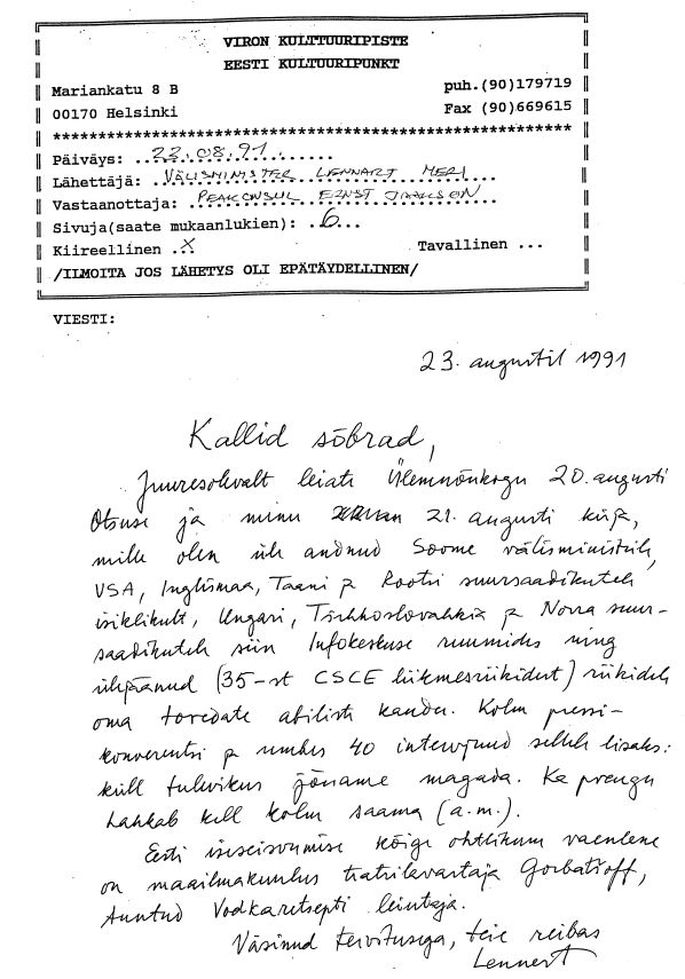 VIRON KULTTUURIPISTE
EESTI KULTUURIPUNKT
Mariankatu 8 B puh.(90)179719
00170 Helsinki Fax (90)669615
**********************************************************
Päiväys: ..23.08.91..........
Lähettäjä: ..VÄLISMINISTER LENNART MERI...
Vastaanottaja: ..PEAKONSUL ERNST JAAKSON..
Sivuja(saate mukaanlukien): ..6...
Kiireellinen ..X Tavallinen ...
/ILMOITA JOS LÄHETYS OLI EPÄTÄYDELLINEN/
VIESTI:
23. augustil 1991
Kallid sõbrad,
Juuresolevalt leiate Ülemnõukogu 20. augusti
Otsuse ja minu 21. augusti kirja,
mille olen üle andnud Soome välisministrile,
USA, Inglismaa, Taani ja Rootsi suursaadikutele
isiklikult, Ungari, Tšehhoslovakkia ja Norra suur-
saadikutele siin Infokeskuse ruumides ning
ülejäänud (35-st CSCE liikmesriikidest) riikidele
oma toredate abiliste kaudu. Kolm pressi-
konverentsi ja umbes 40 intervjuud sellele lisaks:
küll tulevikus jõuame magada. Ka praegu
hakkab kell kolm saama (a.m.).
Eesti iseseisvumise kõige ohtlikum vaenlane
on maailmakuulus teatrilavastaja Gorbatšoff,
tuntud Vodkaretsepti leiutaja.
Väsinud tervitusega, teie reibas
Lennart